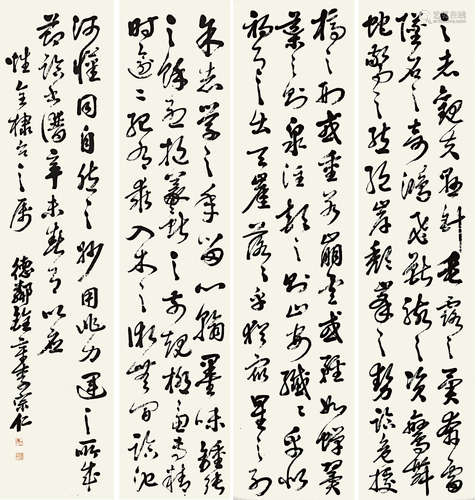 之志觀夫懸針垂露之異奔雷
墜石之奇鴻飛獸駭之資鸞舞
蛇驚之態絕岸頹峯之勢臨危據
槁之形或重若崩雲或輕如蟬翼
導之則泉注頓之則山安纖纖乎似
初月之出天崖落落乎猶眾星之列
余志學之年留心翰墨味鍾張
之餘烈挹羲獻之前規極慮專精
時逾二紀有乖入木之術無間臨池
河漢同自然之妙用非力運之所成
節臨書譜辛未春月以應
棣台之属
德鄰李宗仁